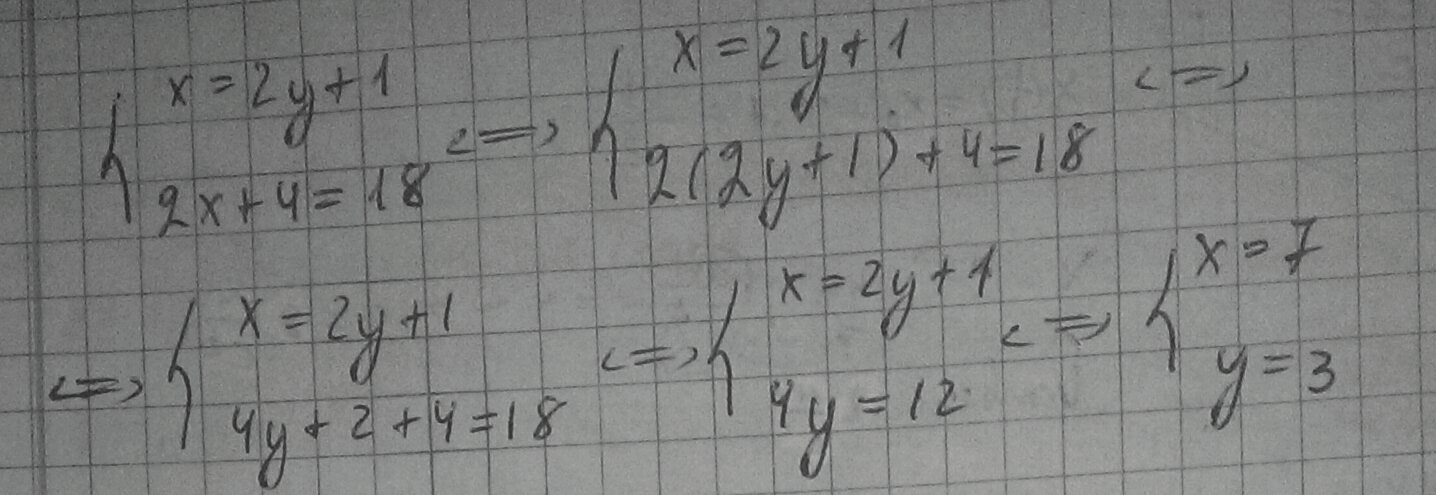 { x = 2y + 1
2x + 4 = 18 <=> { x = 2y + 1
2(2y + 1) + 4 = 18 <=>
<=> { x = 2y + 1
4y + 2 + 4 = 18 <=> { x = 2y + 1
4y = 12 <=> { x = 7
y = 3